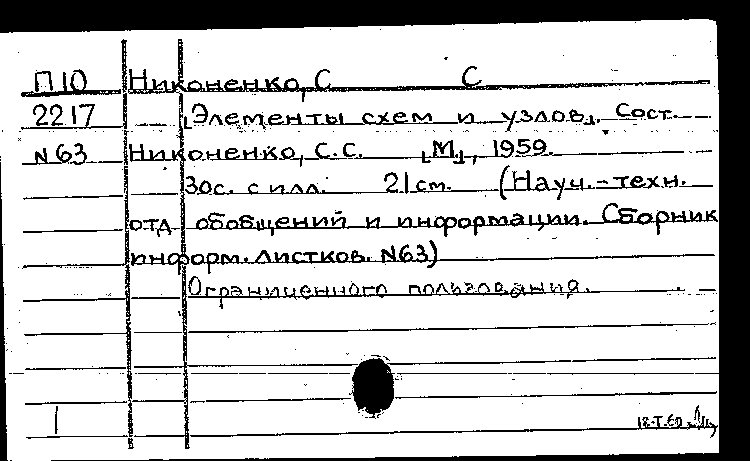 П10 Никоненко, С С
2217 [Элементы схем и узлов]. Сост.
N63 Никоненко, С.С. [М.], 1959.
30с. с илл. 21см. (Науч.-техн.
отд обобщений и информации. Сборник
информ. листков. N63)
Ограниченного пользования.
1